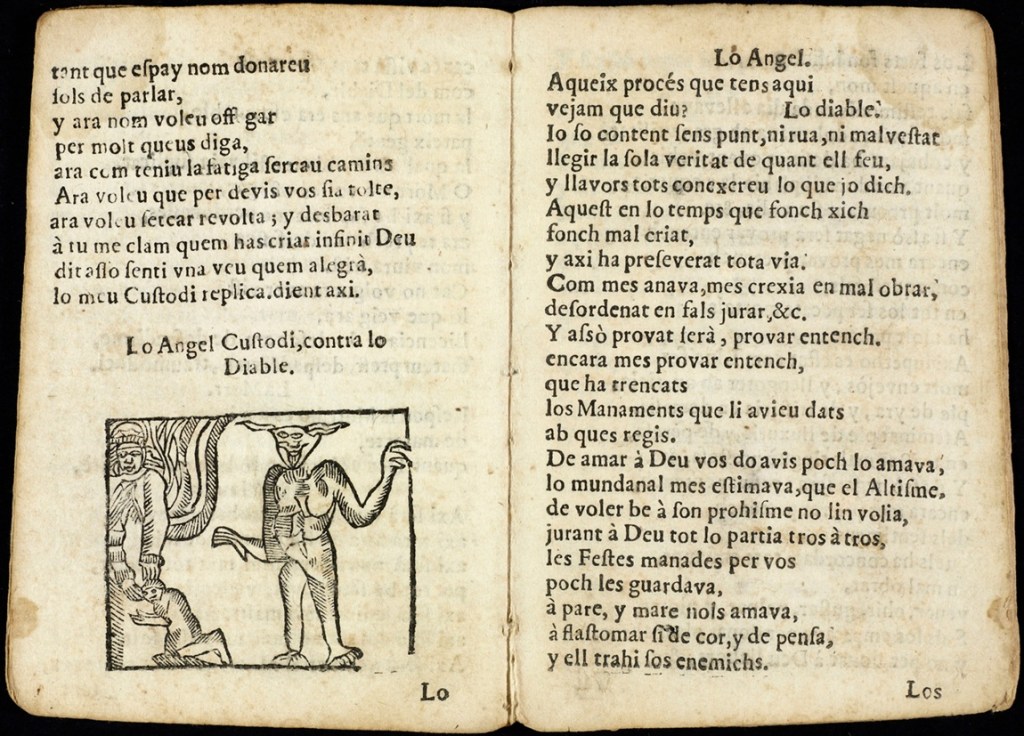 tant que eſpay nom donareu
ſols de parlar,
y ara nom voleu off gar
per molt queus diga,
ara com teniu la fatiga ſercau camins
Ara voleu que per devis vos ſia tolte,
ara voleu ſercar revolta ; y desbarat
à tu me clam quem has criat infinit Deu
dit aſſo ſenti vna veu quem alegrà,
lo meu Cuſtodi replica.dient axi.
Lo Angel Cuſtodi,contra lo
Diable.
Lo
Lo Angel.
Aqueix procés que tens aqui
vejam que diu? Lo diable.
Io ſo content ſens punt,ni rua,ni mal veſtat
llegir la ſola veritat de quant ell feu,
y llavors tots conexereu lo que jo dich.
Aqueſt en lo temps que fonch xich
fonch mal criat,
y axi ha preſeverat tota via.
Com mes anava,mes crexia en mal obrar,
deſordenat en fals jurar,&c.
Y aſsò provat ſerà , provar entench.
encara mes provar entench,
que ha trencats
los Manaments que li avieu dats
ab ques regis.
De amar à Deu vos do avis poch lo amava,
lo mundanal mes eſtimava,que el Altiſme,
de voler be à ſon prohiſme no lin volia,
jurant à Deu tot lo partia tros à tros,
les Feſtes manades per vos
poch les guardava,
à pare, y mare nols amava,
à flaſtomar ſi de cor,y de penſa,
y ell trahi ſos enemichs.
Los